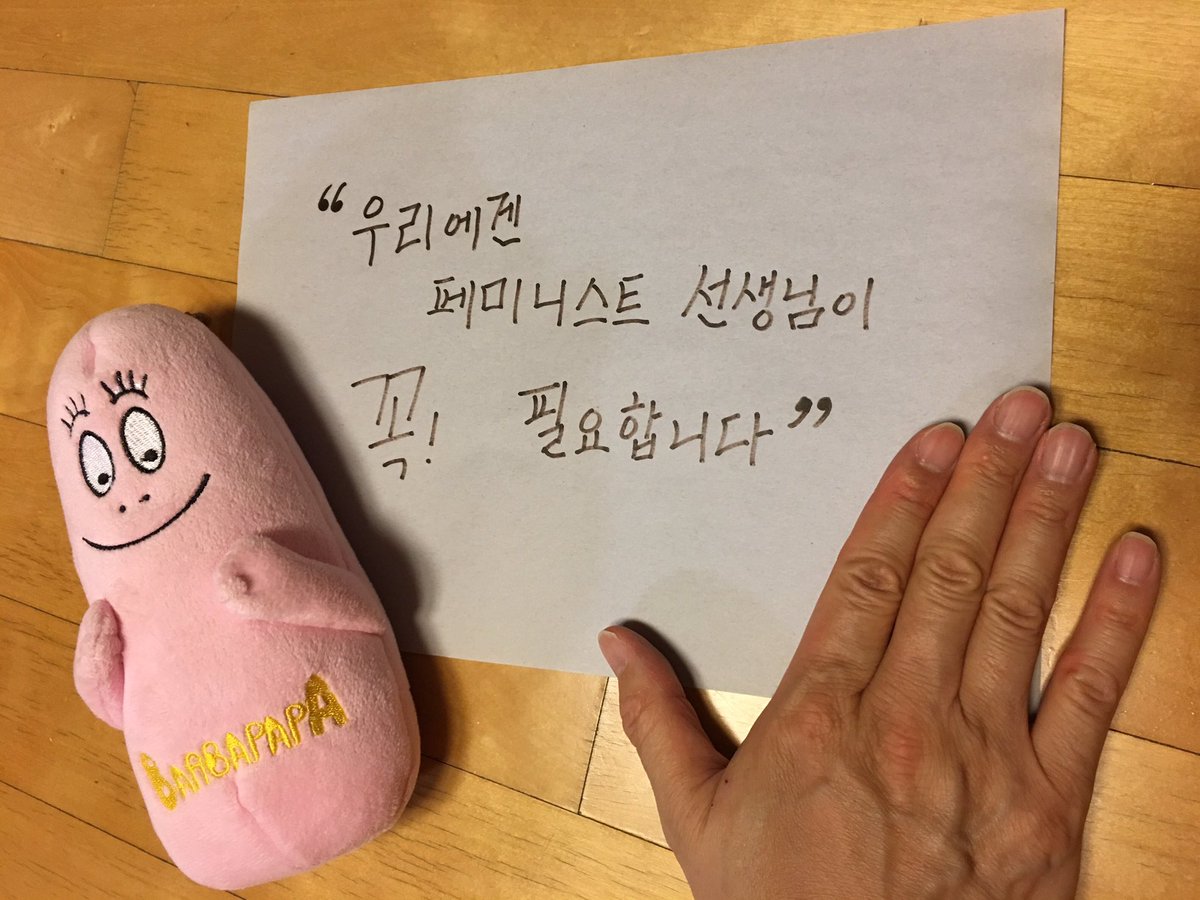 “우리에겐
페미니스트 선생님이
꼭! 필요합니다”
BARBAPAPA